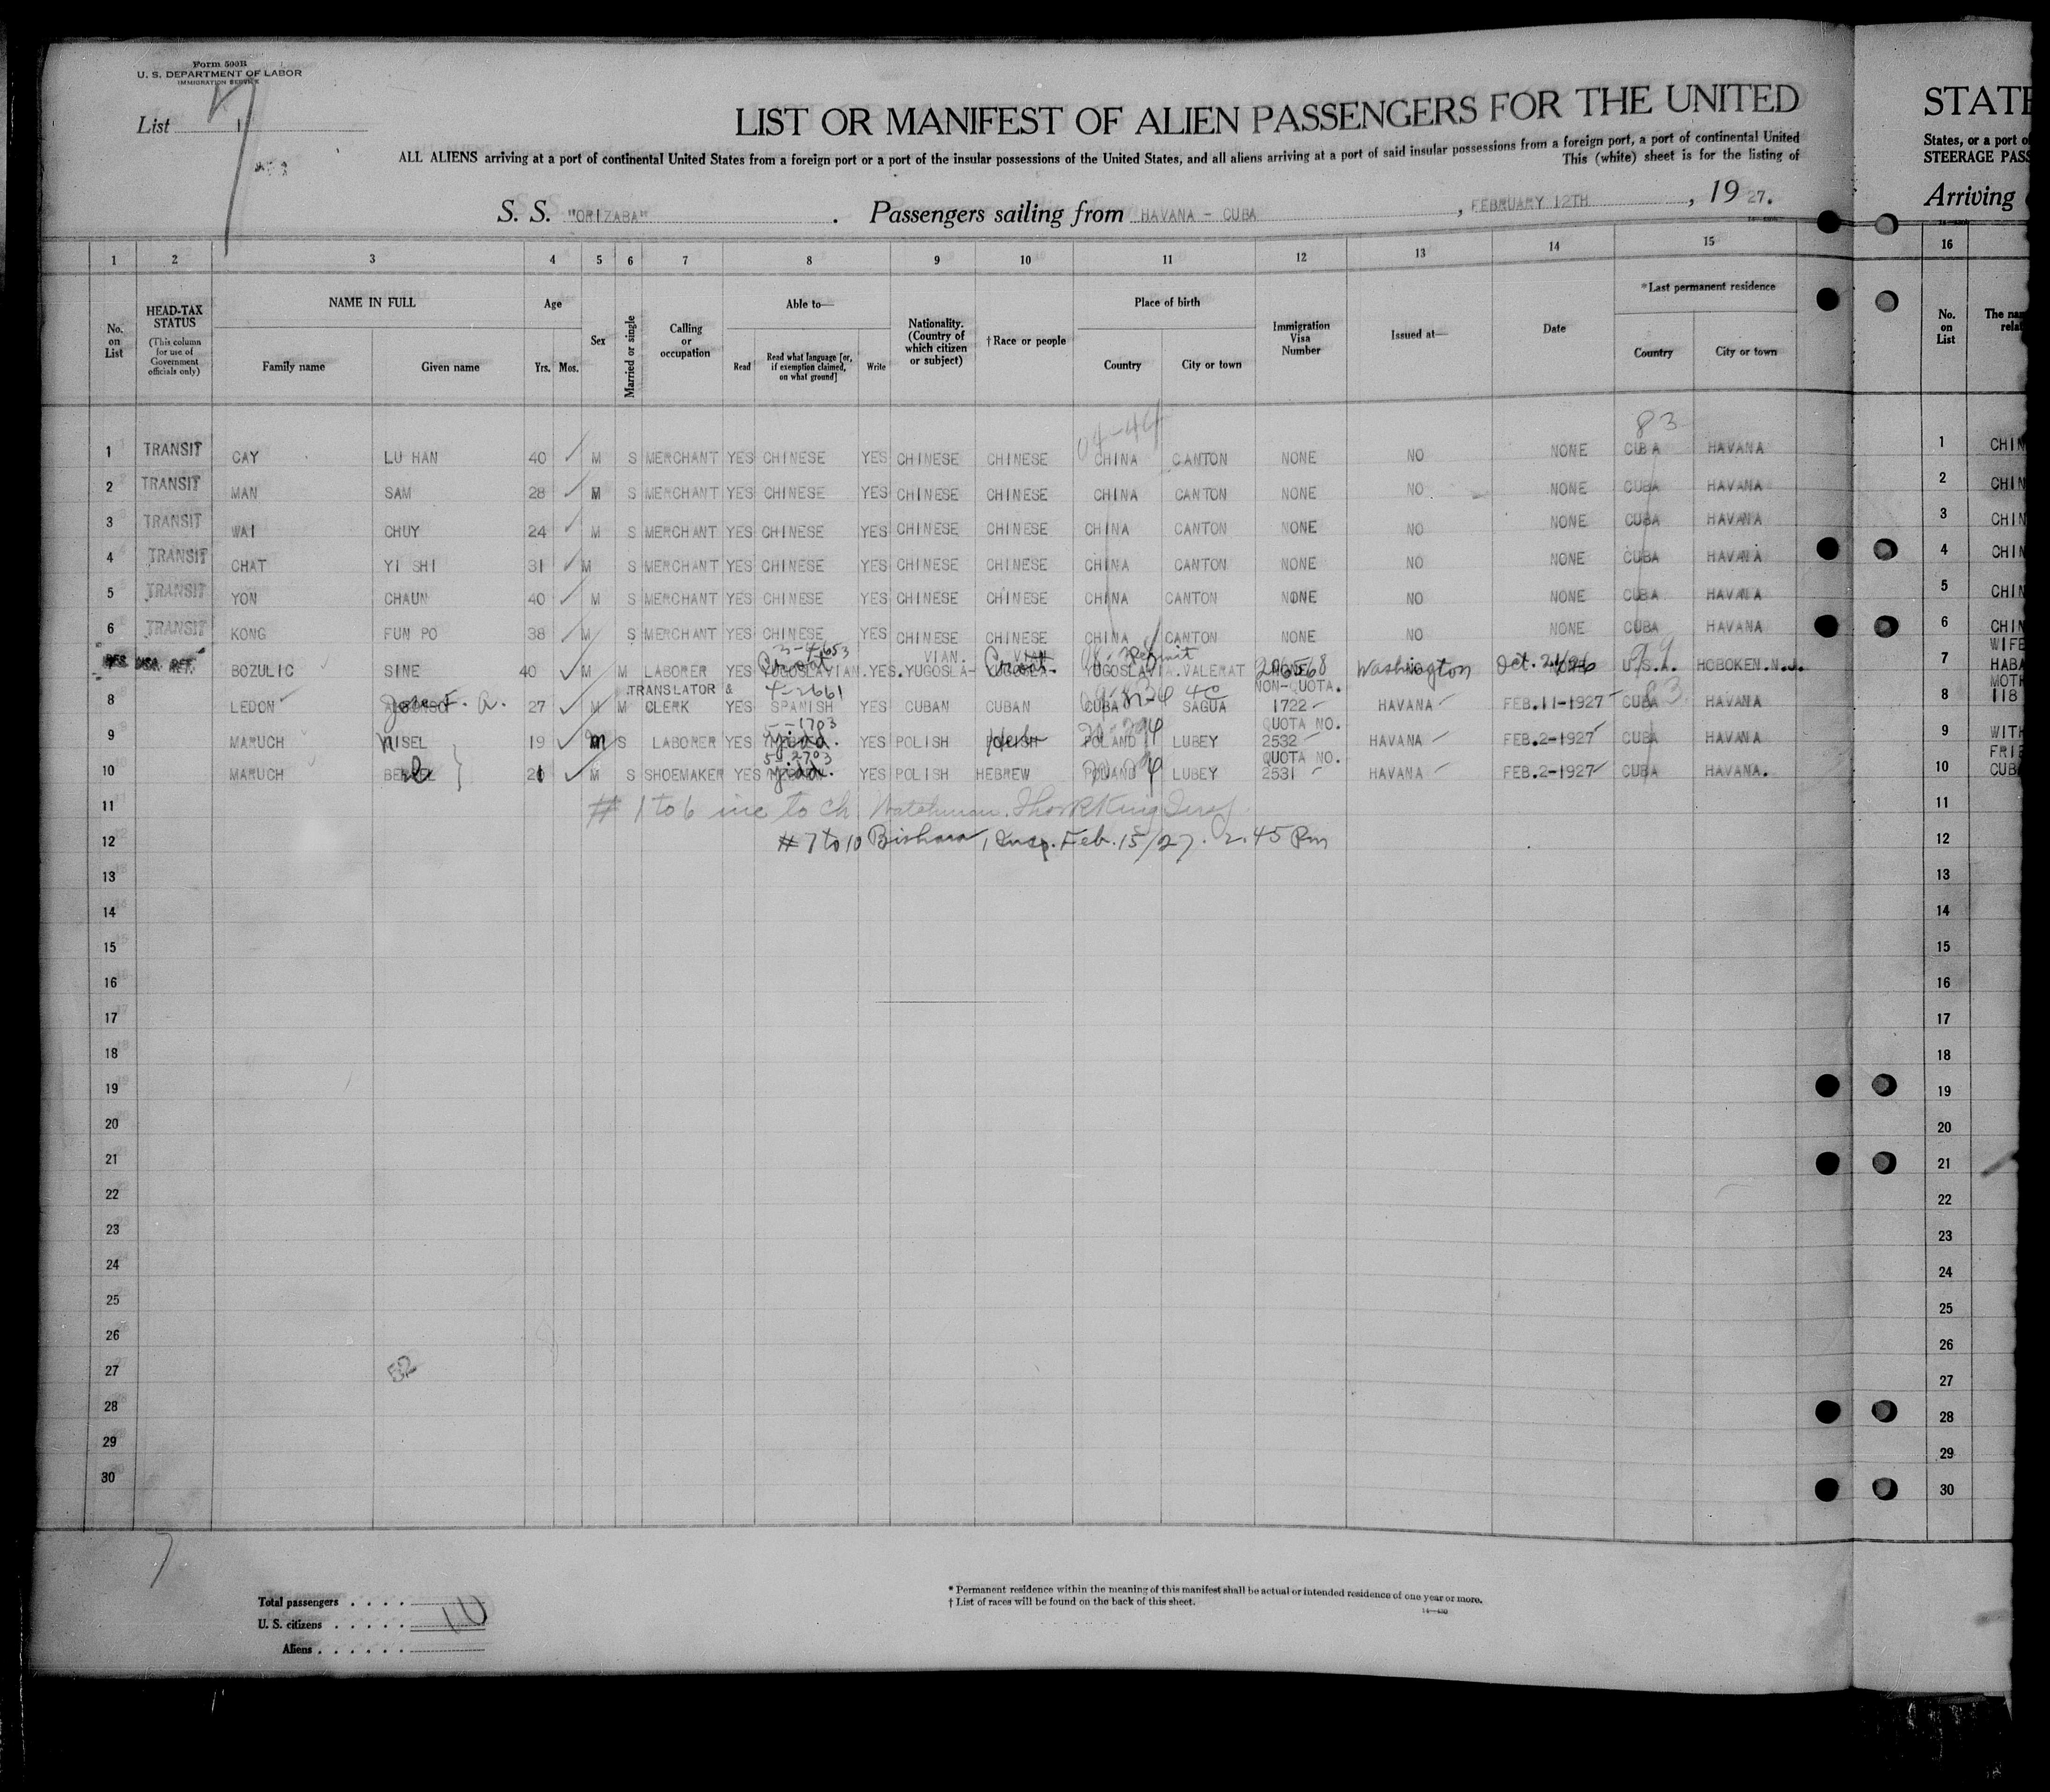 Form 500B
U. S. DEPARTMENT OF LABOR
IMMIGRATION SERVICE
List 1
7
LIST OR MANIFEST OF ALIEN PASSENGERS FOR THE UNITED
ALL ALIENS arriving at a port of continental United States from a foreign port or a port of the insular possessions of the United States, and all aliens arriving at a port of said insular possessions from a foreign port, a port of continental United
This (white) sheet is for the listing of
S. S. "ORIZABA" . Passengers sailing from HAVANA - CUBA , FEBRUARY 12TH , 19 27.
STATE
States, or a port of
STEERAGE PASS
Arriving
1 2 3 4 5 6 7 8 9 10 11 12 13 14 15 16
No. on List
HEAD-TAX STATUS (This column for use of Government officials only)
NAME IN FULL
Family name
Given name
Age
Yrs. Mos.
Sex
Married or single
Calling or occupation
Able to—
Read
Read what language [or, if exemption claimed, on what ground]
Write
Nationality. (Country of which citizen or subject)
† Race or people
Place of birth
Country
City or town
Immigration Visa Number
Issued at—
Date
*Last permanent residence
Country
City or town
No. on List
83
1 TRANSIT CAY LU HAN 40 M S MERCHANT YES CHINESE YES CHINESE CHINESE CHINA CANTON NONE NO NONE CUBA HAVANA 1 CHIN
2 TRANSIT MAN SAM 28 M S MERCHANT YES CHINESE YES CHINESE CHINESE CHINA CANTON NONE NO NONE CUBA HAVANA 2 CHIN
3 TRANSIT WAI CHUY 24 M S MERCHANT YES CHINESE YES CHINESE CHINESE CHINA CANTON NONE NO NONE CUBA HAVANA 3 CHIN
4 TRANSIT CHAT YI SHI 31 M S MERCHANT YES CHINESE YES CHINESE CHINESE CHINA CANTON NONE NO NONE CUBA HAVANA 4 CHIN
5 TRANSIT YON CHAUN 40 M S MERCHANT YES CHINESE YES CHINESE CHINESE CHINA CANTON NONE NO NONE CUBA HAVANA 5 CHIN
6 TRANSIT KONG FUN PO 38 M S MERCHANT YES CHINESE YES CHINESE CHINESE CHINA CANTON NONE NO NONE CUBA HAVANA 6 CHIN
7 BOZULIC SINE 40 M M LABORER YES YUGOSLAVIAN Croat YES. YUGOSLA-VIAN. Croat YUGOSLAVIA. VALERAT Permit Washington Oct. U.S.A. HOBOKEN.N.J. 7 WIFE HABA
8 LEDON Josef. A. 27 M M TRANSLATOR & CLERK YES SPANISH YES CUBAN CUBAN CUBA SAGUA NON-QUOTA. 1722 HAVANA FEB.11-1927 CUBA HAVANA 8 MOTH 118
9 MARUCH NISEL 19 M S LABORER YES Yidd. YES POLISH Heb POLAND LUBEY QUOTA NO. 2532 HAVANA FEB.2-1927 CUBA HAVANA 9 WITH
10 MARUCH 21 M S SHOEMAKER YES Yidd. YES POLISH HEBREW POLAND LUBEY QUOTA NO. 2531 HAVANA FEB.2-1927 CUBA HAVANA. 10 FRIE CUB
11 # 1 to 6 inc to Ch. Watchman. 11
12 # 7 to 10 Bishara, Insp. Feb. 15/27. 2.45 Pm 12
13 13
14 14
15 15
16 16
17 17
18 18
19 19
20 20
21 21
22 22
23 23
24 24
25 25
26 26
27 27
28 28
29 29
30 30
52
7
Total passengers . . . .
U. S. citizens . . . . .
Aliens . . . . . .
10
* Permanent residence within the meaning of this manifest shall be actual or intended residence of one year or more.
† List of races will be found on the back of this sheet.